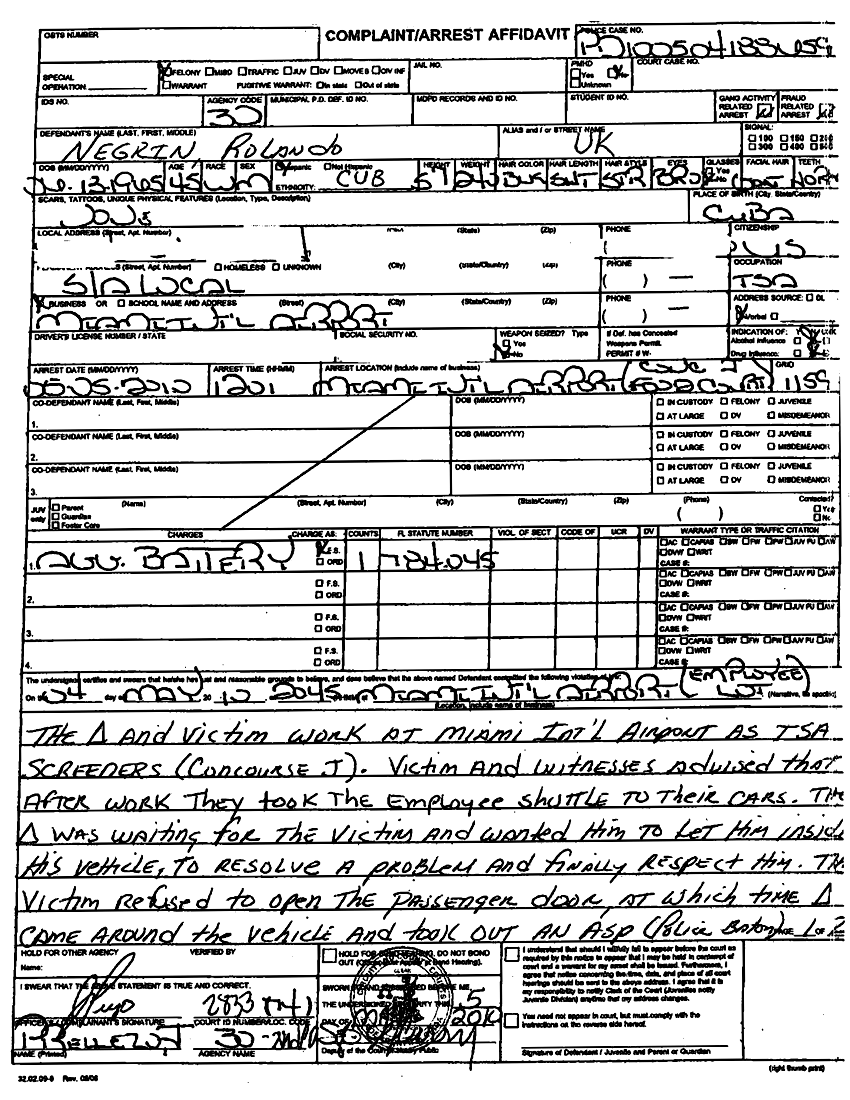 COMPLAINT/ARREST AFFIDAVIT
OBTS NUMBER
POLICE CASE NO.
PD100504183459
SPECIAL OPERATION
FELONY MISD TRAFFIC JUV DV MOVES CIV INF
WARRANT FUGITIVE WARRANT: In state Out of state
JAIL NO.
PMHD Yes No Unknown
COURT CASE NO.
IDS NO.
AGENCY CODE
30
MUNICIPAL P.D. DEF. ID NO.
MDPD RECORDS AND ID NO.
STUDENT ID NO.
GANG ACTIVITY RELATED ARREST
FRAUD RELATED ARREST
DEFENDANT'S NAME (LAST, FIRST, MIDDLE)
NEGRIN ROLANDO
ALIAS and / or STREET NAME
UK
SIGNAL:
DOB (MM/DD/YYYY) AGE RACE SEX Hispanic Not Hispanic ETHNICITY: HEIGHT WEIGHT HAIR COLOR HAIR LENGTH HAIR STYLE EYES GLASSES Yes No FACIAL HAIR TEETH
13-1965 45 W M CUB 5'7 240 SHT STR BRO NORM
SCARS, TATTOOS, UNIQUE PHYSICAL FEATURES (Location, Type, Description)
PLACE OF BIRTH (City, State/Country)
CUBA
LOCAL ADDRESS (Street, Apt. Number) (State) (Zip) PHONE CITIZENSHIP
US
(Street, Apt. Number) HOMELESS UNKNOWN (City) (State/Country) (Zip) PHONE OCCUPATION
S/A LOCAL ( ) — TSA
BUSINESS OR SCHOOL NAME AND ADDRESS (Street) (City) (State/Country) (Zip) PHONE ADDRESS SOURCE: DL
MIAMI INT'L AIRPORT ( ) — Verbal
DRIVER'S LICENSE NUMBER / STATE SOCIAL SECURITY NO. WEAPON SEIZED? Type Yes No If Def. has Concealed Weapons Permit, PERMIT # W- INDICATION OF: Alcohol Influence Drug Influence
ARREST DATE (MM/DD/YYYY) ARREST TIME (HH:MM) ARREST LOCATION (Include name of business) GRID
05-05-2010 1201 MIAMI INT'L AIRPORT (CONC J FOOD COURT) 1159
CO-DEFENDANT NAME (Last, First, Middle) DOB (MM/DD/YYYY) IN CUSTODY FELONY JUVENILE
1. AT LARGE DV MISDEMEANOR
CO-DEFENDANT NAME (Last, First, Middle) DOB (MM/DD/YYYY) IN CUSTODY FELONY JUVENILE
2. AT LARGE DV MISDEMEANOR
CO-DEFENDANT NAME (Last, First, Middle) DOB (MM/DD/YYYY) IN CUSTODY FELONY JUVENILE
3. AT LARGE DV MISDEMEANOR
JUV only Parent Guardian Foster Care (Name) (Street, Apt. Number) (City) (State/Country) (Zip) (Phone) ( ) Contacted? Yes No
CHARGES CHARGE AS: COUNTS FL STATUTE NUMBER VIOL. OF SECT CODE OF UCR DV WARRANT TYPE OR TRAFFIC CITATION
1. AGG. BATTERY F.S. ORD 1 784.045 AC CAPIAS BW FW PW JUV PU AW DVW WRIT CASE #:
2. F.S. ORD AC CAPIAS BW FW PW JUV PU AW DVW WRIT CASE #:
3. F.S. ORD AC CAPIAS BW FW PW JUV PU AW DVW WRIT CASE #:
4. F.S. ORD AC CAPIAS BW FW PW JUV PU AW DVW WRIT CASE #:
The undersigned certifies and swears that he/she has just and reasonable grounds to believe, and does believe that the above named Defendant committed the following violation of law:
On the 04 day of MAY 20 10 2045 MIAMI INT'L AIRPORT (EMPLOYEE LOT) (Narrative, be specific)
(Location, include name of business)
THE Δ AND VICTIM WORK AT MIAMI INT'L AIRPORT AS TSA
SCREENERS (CONCOURSE J). VICTIM AND WITNESSES ADVISED that
AFTER WORK THEY took THE EMPLOYEE SHUTTLE TO THEIR CARS. THE
Δ WAS WAITING for THE VICTIM AND WANTED HIM TO LET HIM INSIDE
HIS VEHICLE, TO RESOLVE A PROBLEM AND FINALLY RESPECT HIM. THE
VICTIM REFUSED to open THE PASSENGER door, AT WHICH TIME Δ
CAME AROUND the VEHICLE AND took OUT AN ASP (Police Baton) PAGE 1 OF 2
HOLD FOR OTHER AGENCY
Name:
VERIFIED BY
HOLD FOR BOND HEARING, DO NOT BOND OUT (Officer Must Appear at Bond Hearing).
I SWEAR THAT THE ABOVE STATEMENT IS TRUE AND CORRECT.
OFFICER'S / COMPLAINANT'S SIGNATURE
COURT ID NUMBER/LOC. CODE
NAME (Printed)
30
AGENCY NAME
SWORN TO AND SUBSCRIBED BEFORE ME,
THE UNDERSIGNED AUTHORITY THIS 5
DAY OF 2010
Deputy of the Court Notary Public
I understand that should I willfully fail to appear before the court as
required by this notice to appear that I may be held in contempt
of court and a warrant for my arrest shall be issued. Furthermore, I
agree that notice concerning the time, date, and place of all court
hearings should be sent to the above address. I agree that it is
my responsibility to notify Clerk of the Court (Juveniles notify
Juvenile Division) anytime that my address changes.
You need not appear in court, but must comply with the
instructions on the reverse side hereof.
Signature of Defendant / Juvenile and Parent or Guardian
(right thumb print)
32.02.09-9 Rev. 09/08